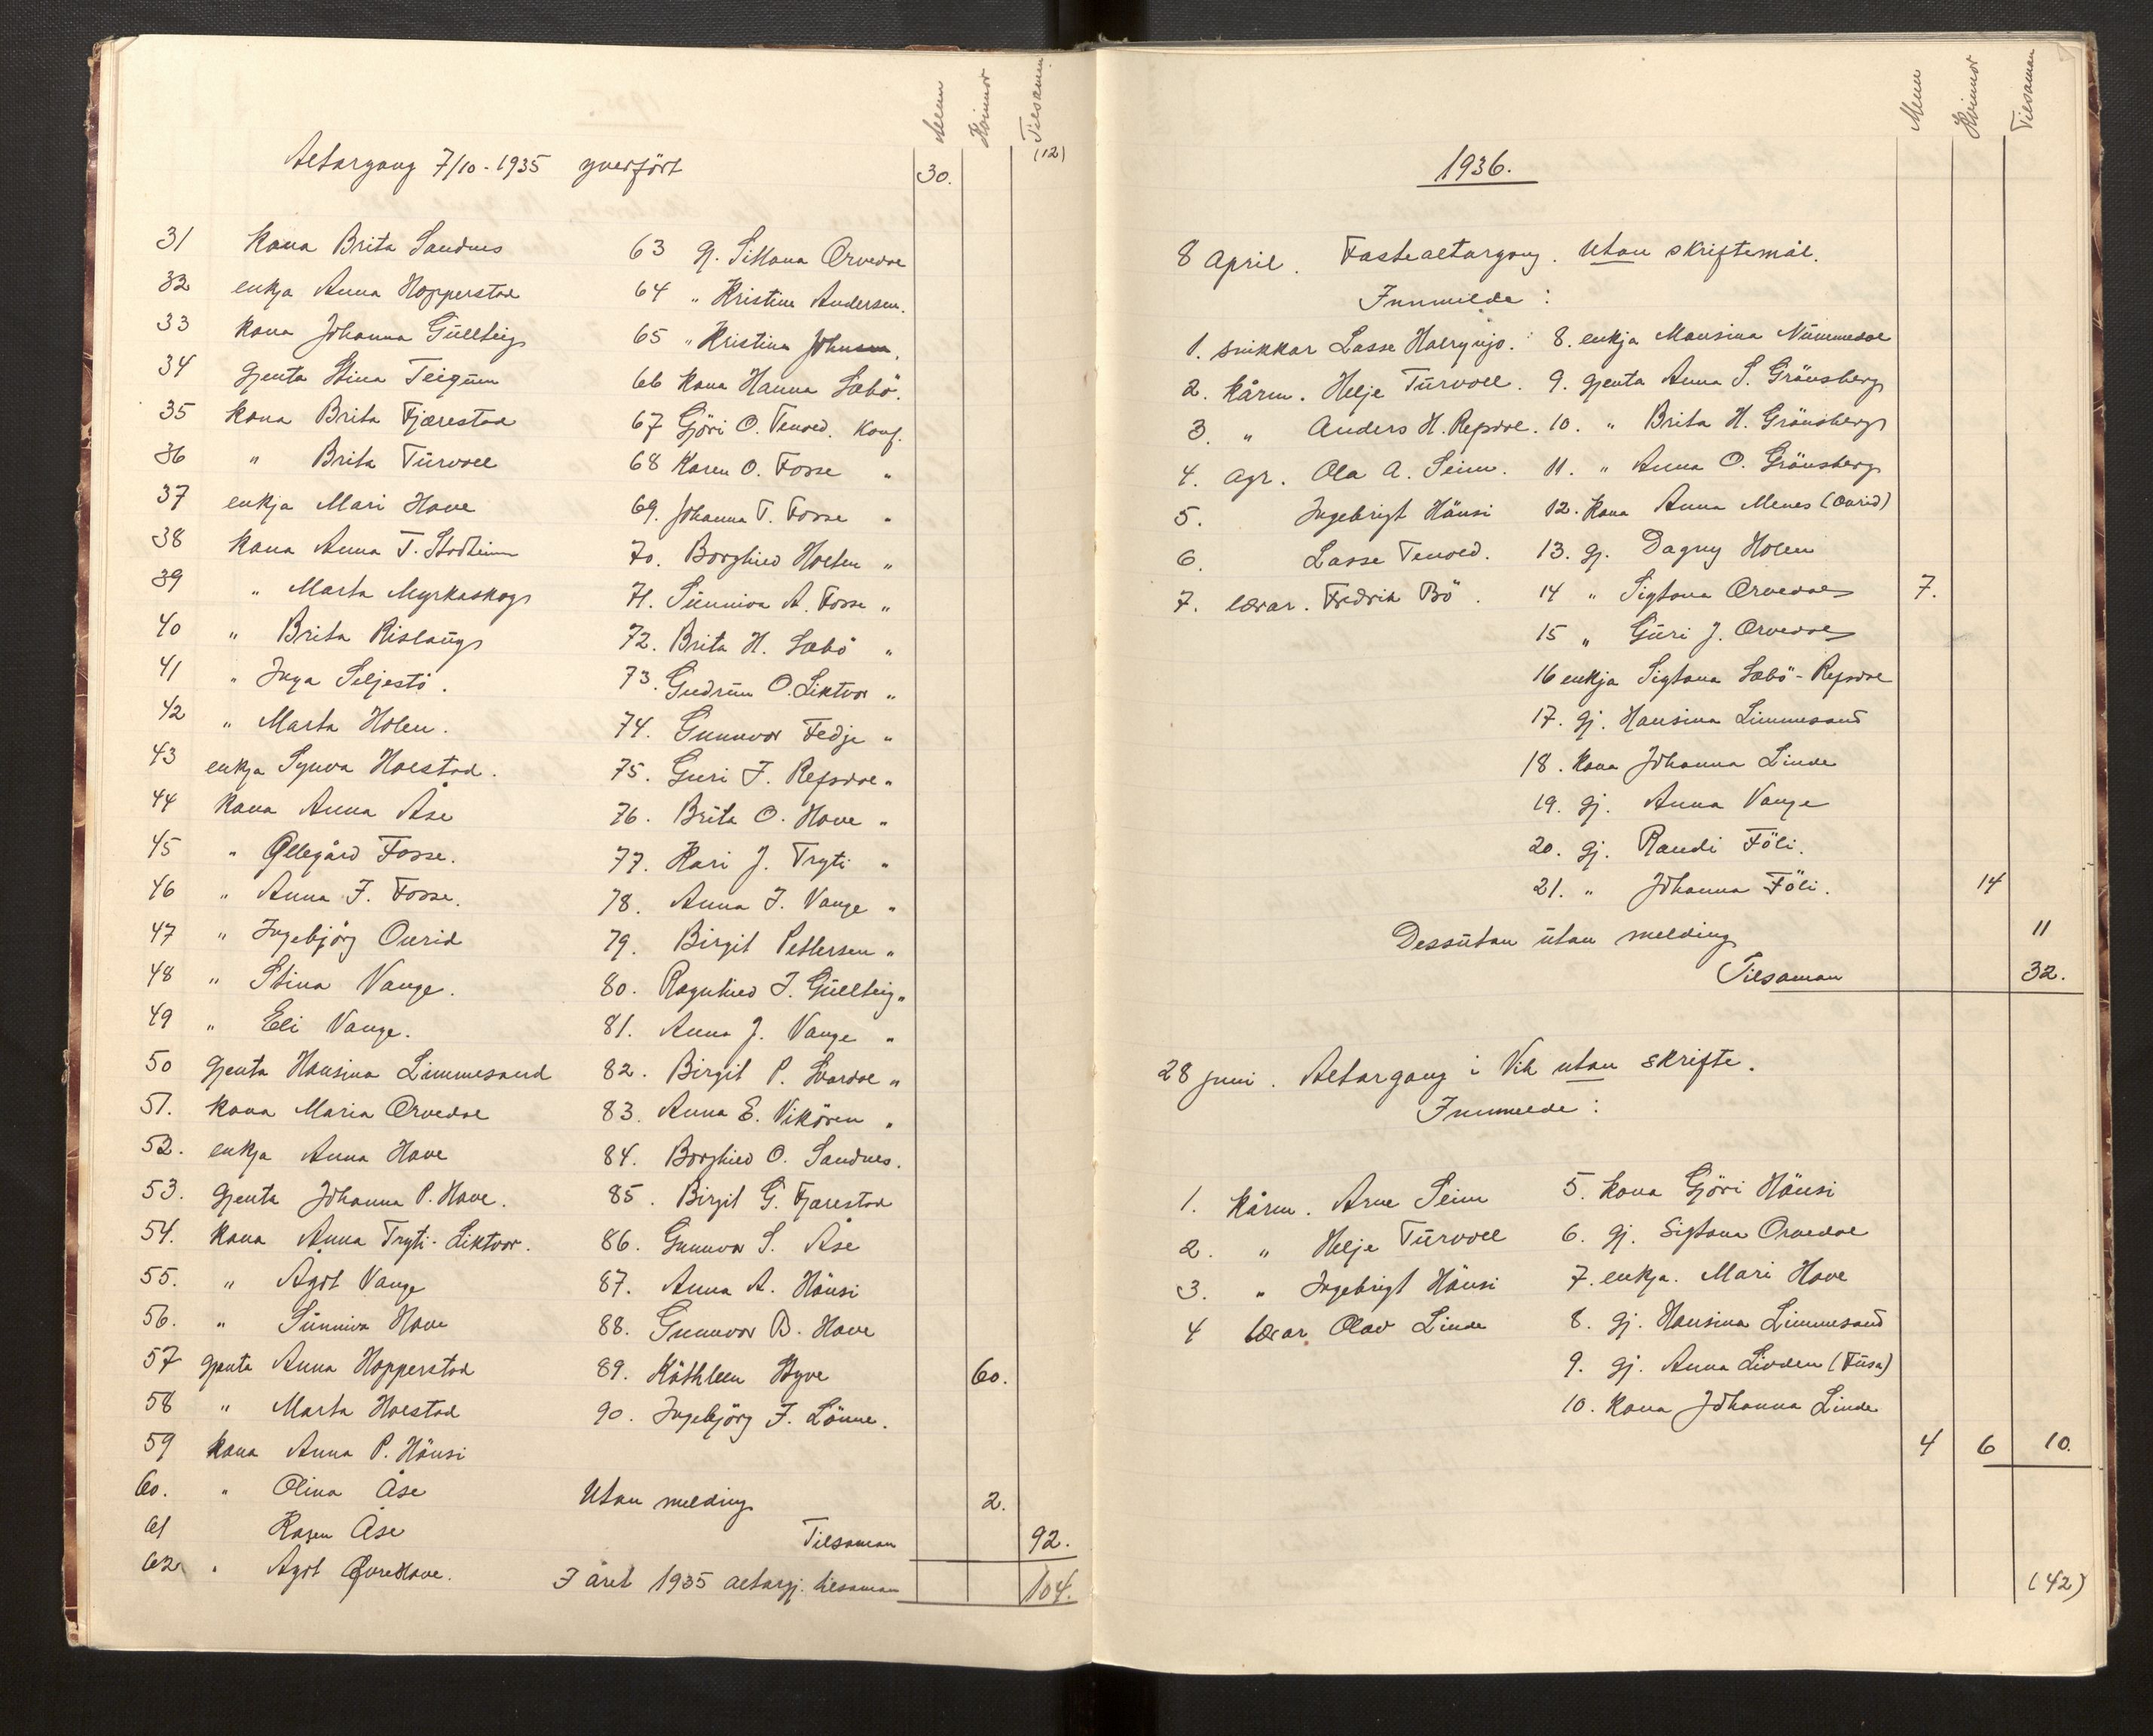 Menn Kvinnor Tilsaman
(12)
Altargang 7/10-1935 yverført 30.
31 Kona Brita Sandnes
32 enkja Anna Hopperstad
33 Kona Johanna Gullteig
34 Gjenta Stina Teigum
35 Kona Brita Fjærestad
36 " Brita Turvoll
37 enkja Mari Hove
38 Kona Anna T. Stadheim
39 " Marta Myrkaskog
40 " Brita Rislaug
41 " Inga Seljestö.
42 " Marta Holen.
43 enkja Synva Holstad.
44 Kona Anna Åse
45 " Øllegård Fosse.
46 " Anna J. Fosse.
47 " Ingebjörg Ourid
48 " Stina Vange.
49 " Eli Vange.
50 Gjenta Hansina Limmesand
51. Kona Maria Orvedal
52. enkja Anna Hove
53. Gjenta Johanna P. Hove.
54. Kona Anna Tryti-Liktvor.
55. " Agöt Vange
56. " Sunniva Hove
57 Gjenta Anna Hopperstad
58 " Marta Holstad
59 Kona Anna P. Hönsi
60. " Olina Åse
61 Åse
62 " Agöt Hove.
63 gj. Orvedal
64 " Kristine Andersen.
65 " Kristina
66 Kona Hanna Sæbö.
67 Gjöri O. Tenold. Konf.
68 Karen O. Fosse "
69. Johanna T. Fosse "
70. Borghild Holen "
71. Sunniva A. Fosse "
72. Brita H. Sæbö "
73. Gudrun O. Liktvor "
74. Gunnvor Fedje "
75. Guri J. Refsdal "
76. Brita O. Hove "
77. Kari J. Tryti "
78. Anna J. Vange "
79. Birgit Pettersen "
80. Ragnhild J. Gullteig "
81. Anna J. Vange "
82. Birgit P. "
83. Anna E. Vikören "
84. Borghild O. Sandnes.
85. Birgit G. Fjærestad
86. Gunnvor S. Åse
87. Anna A. Hönsi
88. Gunnvor B. Hove
89. Käthleen Hyve 60.
90. Ingebjörg J. Lönne.
Utan melding 2.
Tilsaman 92.
I året 1935 altargj. tilsaman 104.
Menn Kvinnor Tilsaman
1936.
8 April. Fastealtargang. Utan skriftemål.
Innmelde:
1. snikkar Lasse
2. Kårm. Helje Turvoll.
3. " Anders H. Refsdal.
4. Agr. Ola A. Seim.
5. Ingebrigt Hönsi
6. Lasse Tenold.
7. lærar. Fredrik Bö. 7.
8. enkja Monsina Nummedal
9. Gjenta Anna S. Grönsberg
10. " Brita H. Grönsberg
11. " Anna O. Grönsberg
12. Kona Anna Menes (Ourid)
13. gj. Dagny Holen
14 " Sigtona Orvedal
15 " Guri J. Orvedal
16 enkja Sigtona Sæbö-Refsdal
17. gj. Hansina Limmesand
18. Kona Johanna Linde
19. gj. Anna Vange
20. gj. Randi Föli.
21. " Johanna Föli. 14
Dessutan utan melding 11
Tilsaman 32.
28 juni. Altargang i Vik utan skrifte.
Innmelde:
1. Kårm. Arne Seim
2. " Helje Turvoll
3. " Ingebrigt Hönsi
4 lærar Olav Linde
5. Kona Gjöri Hönsi
6. gj. Sigtona Orvedal
7. enkja. Mari Hove
8. gj. Hansina Limmesand
9. gj. Anna (Fusa)
10. Kona Johanna Linde
4 6 10.
(42)